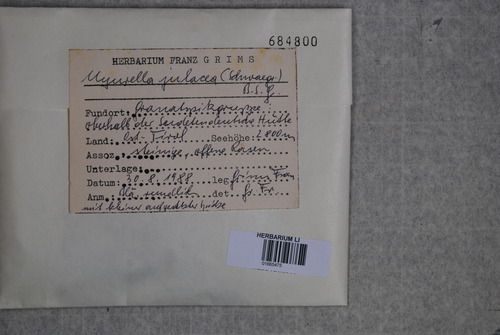 684800
HERBARIUM FRANZ GRIMS
Myurella julacea (Schwaegr.)
B.S.G.
Fundort: Granatspitzgruppe
oberhalb der Hütte
Land: Ost-Tirol Seehöhe: 2800m
Assoz.: steiniger, offener Rasen
Unterlage:
Datum: 30.8.1988 leg. Grims Franz
Anm. det. Gs. Fr.
mit kleiner aufgesetzter Spitze
HERBARIUM LI